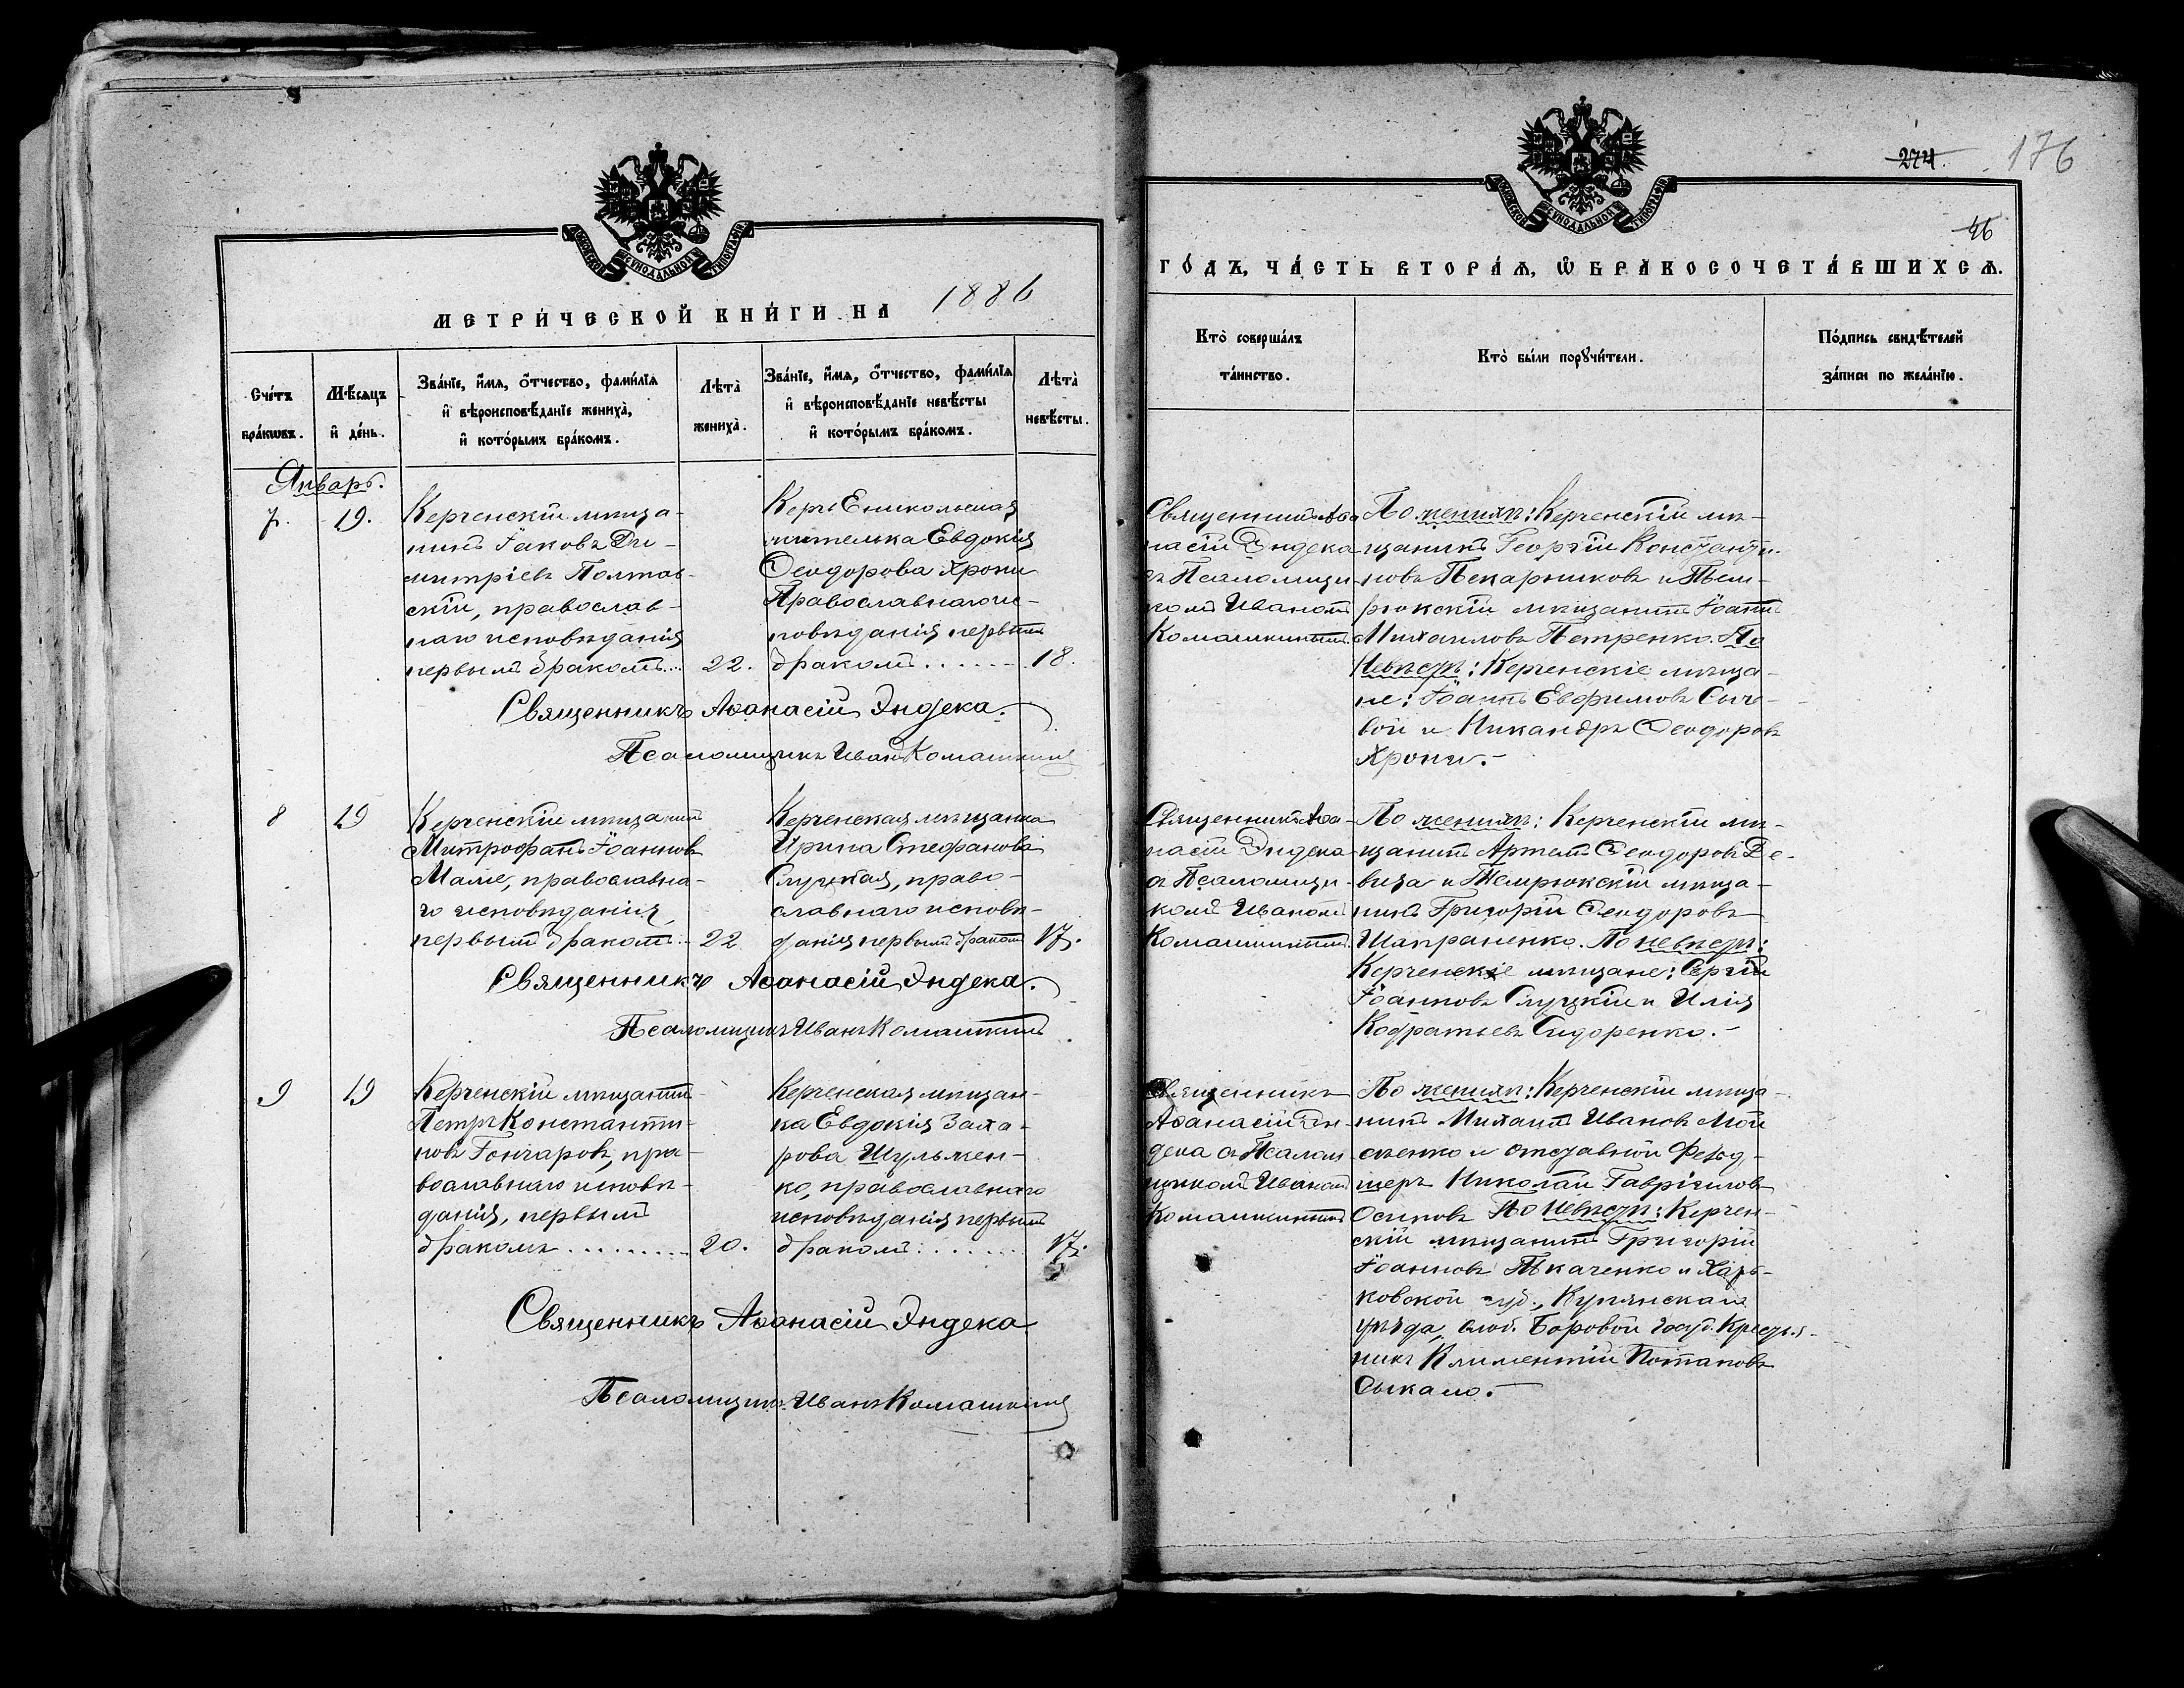 МОСКОВСКОЙ СѴНОДАЛЬНОЙ ТИПОГРАФІИ
МЕТРИ́ЧЕСКОЙ КНИ́ГИ НА 1886
Сче́тъ бра́кѡвъ.
Мѣ́сяцъ и҆ де́нь.
Зва́нїе, и҆́мя, ѻ҆́тчество, фами́лїя и҆ вѣроисповѣ́данїе жениха̀, и҆ кото́рымъ бра́комъ.
Лѣта̀ жениха̀.
Зва́нїе, и҆́мя, ѻ҆́тчество, фами́лїя и҆ вѣроисповѣ́данїе невѣ́сты и҆ кото́рымъ бра́комъ.
Лѣта̀ невѣ́сты.
Январь.
7. 19.
Керченскій мѣща-
нинъ Іаковъ Ди-
митріевъ Полтав-
скій, православ-
наго исповѣданія
первымъ бракомъ... 22.
Керчь Еникольская
жителька Евдокія
Ѳеодорова Хрони
Православнаго ис-
повѣданія первымъ
бракомъ....... 18.
Священникъ Аѳанасій Эндека.
Псаломщикъ Иванъ Комашкинъ
8 19
Керченскій мѣщанинъ
Митрофанъ Іоанновъ
Мале, православна-
го исповѣданія,
первымъ бракомъ.. 22
Керченская мѣщанка
Ирина Стефанова
Слуцкая, право-
славнаго исповѣ-
данія первымъ бракомъ 17.
Священникъ Аѳанасій Эндека.
Псаломщикъ Иванъ Комашкинъ
9 19
Керченскій мѣщанинъ
Петръ Константи-
новъ Гончаровъ, пра-
вославнаго исповѣ-
данія, первымъ
бракомъ......... 20.
Керченская мѣщан-
ка Евдокія Заха-
рова Шульжен-
ко, православнаго
исповѣданія первымъ
бракомъ........ 17.
Священникъ Аѳанасій Эндека
Псаломщикъ Иванъ Комашкинъ
274. 176
46
МОСКОВСКОЙ СѴНОДАЛЬНОЙ ТИПОГРАФІИ
ГО́ДЪ, ЧА́СТЬ ВТОРА́Я, Ѡ҆ БРАКОСОЧЕТА́ВШИХСЯ.
Кто̀ соверша́лъ та́инство.
Кто̀ бы́ли порꙋчи́тели.
По́дпись свидѣ́телей за́писи по жела́нїю.
Священникъ Аѳа-
насій Эндека
съ Псаломщи-
комъ Иваномъ
Комашкинымъ.
По женихѣ: Керченскій мѣ-
щанинъ Георгій Константи-
новъ Пекарниковъ и Тем-
рюкскій мѣщанинъ Іоаннъ
Михаиловъ Петренко. По
Невѣстѣ: Керченскіе мѣща-
не: Іоаннъ Евфимовъ Сыче-
вой и Никандръ Ѳеодоровъ
Хрони.-
Священникъ Аѳа-
насій Эндека
съ Псаломщи-
комъ Иваномъ
Комашкинымъ.
По женихѣ: Керченскій мѣ-
щанинъ Артемъ Ѳеодоровъ Де-
вица и Темрюкскій мѣща-
нинъ Григорій Ѳеодоровъ
Шапраненко. По невѣстѣ:
Керченскіе мѣщане: Сергій
Іоанновъ Слуцкій и Илія
Кодратьевъ Сидоренко.-
Священникъ
Аѳанасій Эн-
дека съ Псалом-
щикомъ Иваномъ
Комашкинымъ
По женихѣ: Керченскій мѣща-
нинъ Михаилъ Ивановъ Мой
сѣенко и отставной Фельд-
шеръ Николай Гавріиловъ
Осиповъ По Невѣстѣ: Керчен-
скій мѣщанинъ Григорій
Іоанновъ Ткаченко и Харь-
ковской губ., Купянскаго
уѣзда, слоб. Боровой госуд. Крестья-
нинъ Климентій Потаповъ
Сыкало.-